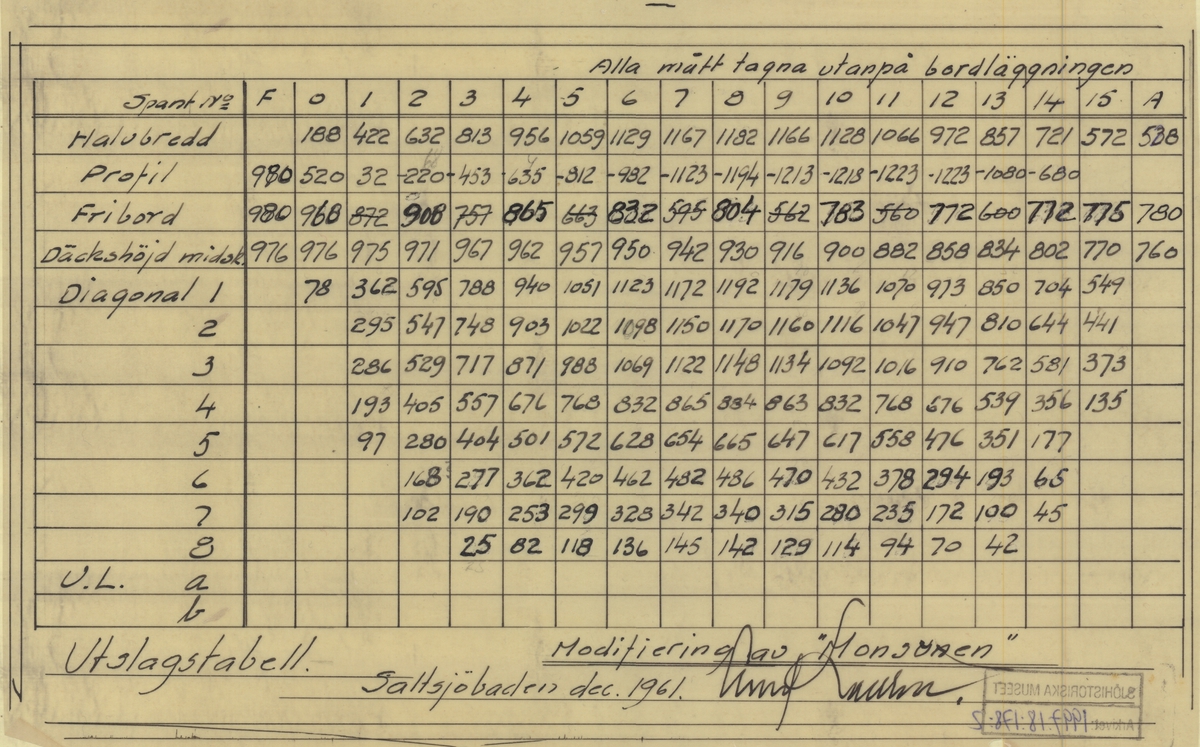 Alla mått tagna utanpå bordläggningen
Spant No F 0 1 2 3 4 5 6 7 8 9 10 11 12 13 14 15 A
Halvbredd 188 422 632 813 956 1059 1129 1167 1182 1166 1128 1066 972 857 721 572 538
Profil 980 520 32 -220 -453 -635 -812 -982 -1123 -1194 -1213 -1218 -1223 -1223 -1080 -680
Fribord 980 968 872 908 757 865 663 832 595 804 562 783 560 772 600 772 775 780
Däckshöjd midsk. 976 976 975 971 967 962 957 950 942 930 916 900 882 858 834 802 770 760
Diagonal 1 78 362 595 788 940 1051 1123 1172 1192 1179 1136 1070 973 850 704 549
2 295 547 748 903 1022 1098 1150 1170 1160 1116 1047 947 810 644 441
3 286 529 717 871 988 1069 1122 1148 1134 1092 1016 910 762 581 373
4 193 405 557 676 768 832 865 884 863 832 768 676 539 356 135
5 97 280 404 501 572 628 654 665 647 617 558 476 351 177
6 168 277 362 420 462 482 486 470 432 378 294 193 65
7 102 190 253 299 328 342 340 315 280 235 172 100 45
8 25 82 118 136 145 142 129 114 94 70 42
V.L. a
b
Utslagstabell. Modifiering av "Monsunen"
Saltsjöbaden dec. 1961.
SJÖHISTORISKA MUSEET
Arkivet 1997:18:178:2